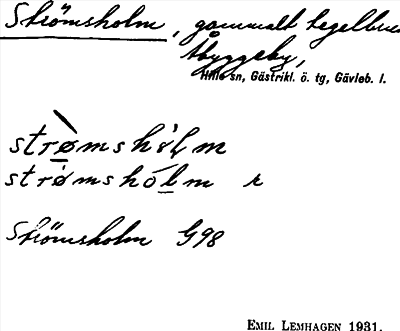 Strömsholm, gammalt tegelbruk
Åbyggeby,
Hille sn, Gästrikl. ö. tg, Gävleb. l.
strø̀mshòlm
strø̀mshólm r
Strömsholm G98
EMIL LEMHAGEN 1931.